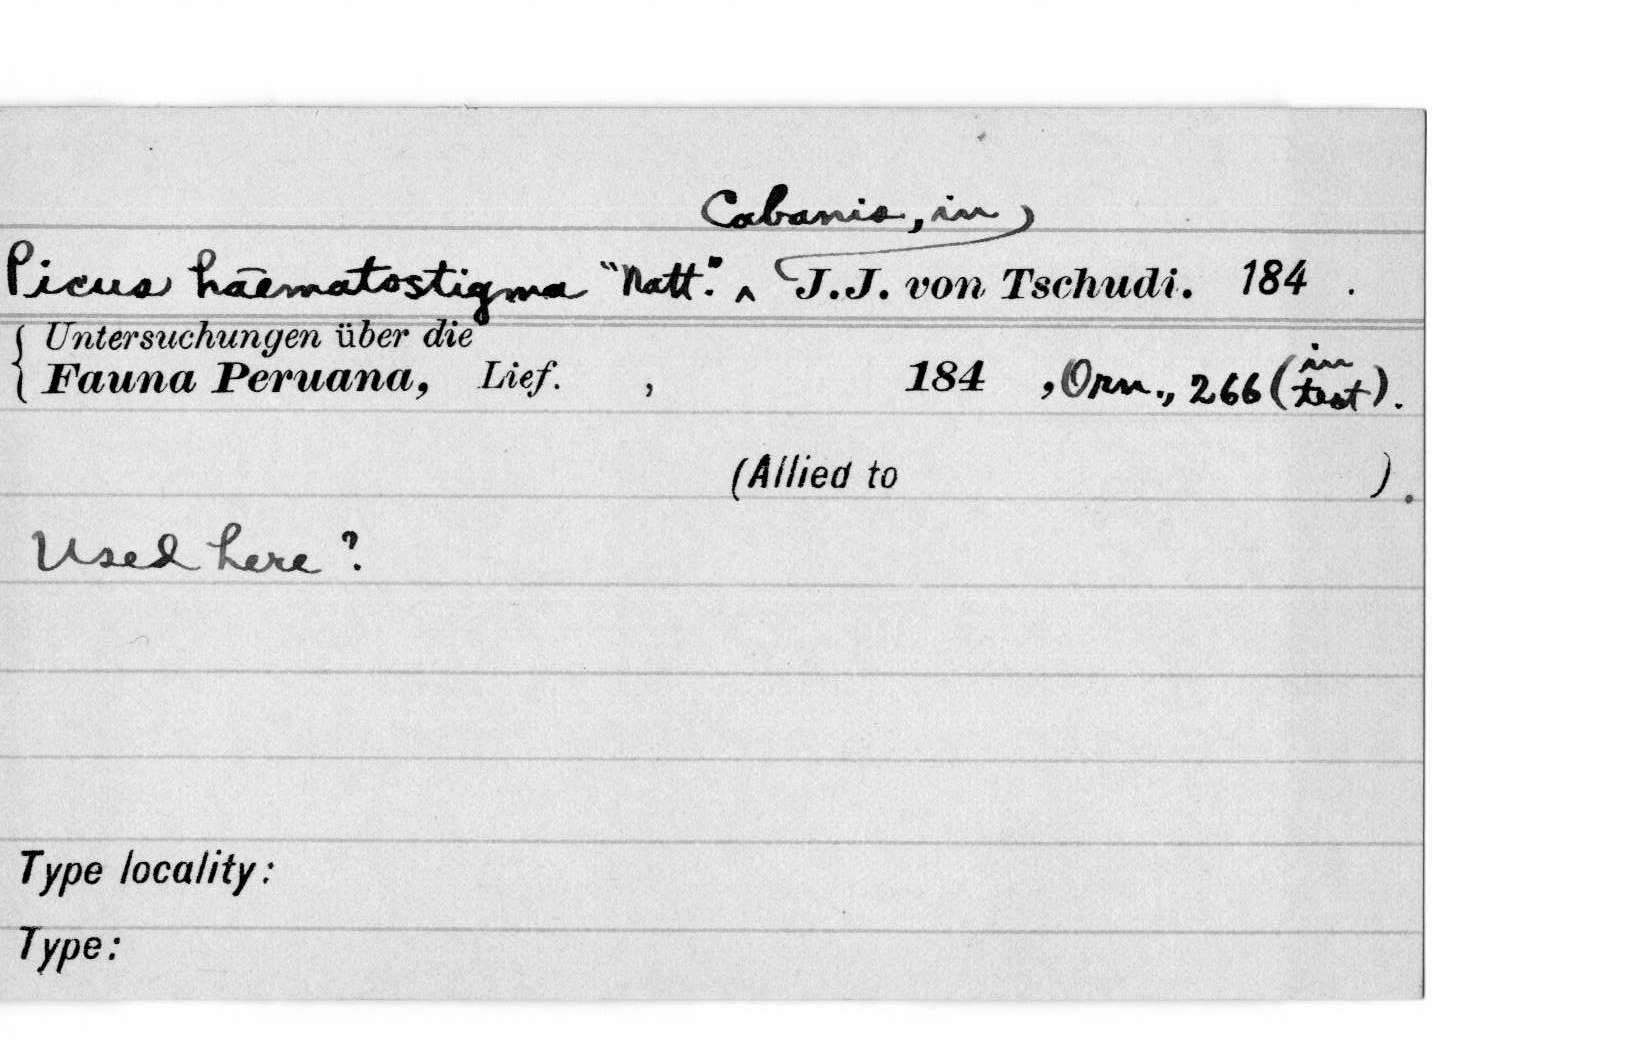 Cabanis, in
Picus haematostigma "Natt." ^ J.J. von Tschudi. 184 .
{ Untersuchungen über die
Fauna Peruana, Lief. , 184 , Orn., 266 (in text).
(Allied to ).
Used here?
Type locality:
Type: